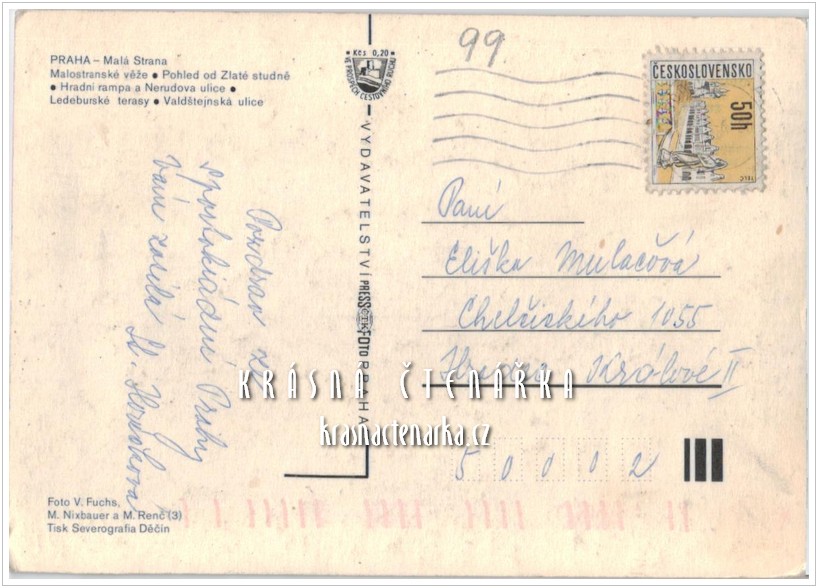 PRAHA – Malá Strana
Malostranské věže • Pohled od Zlaté studně
• Hradní rampa a Nerudova ulice •
Ledeburské terasy • Valdštejnská ulice
Kčs 0,20
VE PROSPĚCH CESTOVNÍHO RUCHU
VYDAVATELSTVÍ PRESSFOTO PRAHA
ČTK
99
ČESKOSLOVENSKO
50h
TELČ
Pozdrav ze
spartakiádní Prahy
Vám zasílá
Paní
Eliška Mulačová
Chelčického 1055
Hradec Králové II
50002
KRÁSNÁ ČTENÁŘKA
krasnactenarka.cz
Foto V. Fuchs,
M. Nixbauer a M. Renč (3)
Tisk Severografia Děčín